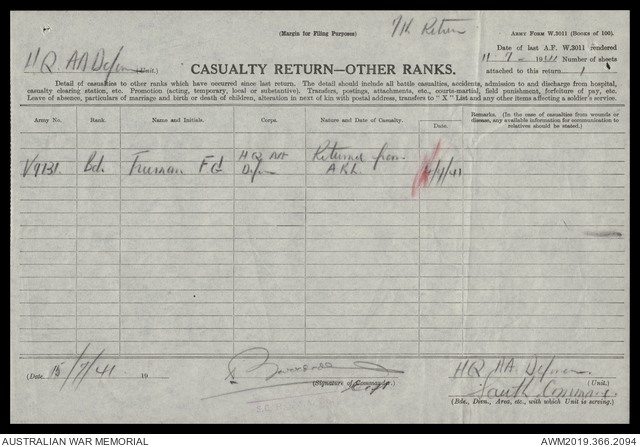 (Margin for Filing Purposes)
Nil Return
ARMY FORM W.3011 (BOOKS OF 100).
Date of last A.F. W.3011 rendered
HQ AA Defences (Unit.)
11 - 7 - 19 Number of sheets
attached to this return 1
CASUALTY RETURN—OTHER RANKS.
Detail of casualties to other ranks which have occurred since last return. The detail should include all battle casualties, accidents, admission to and discharge from hospital,
casualty clearing station, etc. Promotion (acting, temporary, local or substantive), Transfers, postings, attachments, etc., courts-martial, field punishment, forfeiture of pay, etc.
Leave of absence, particulars of marriage and birth or death of children, alteration in next of kin with postal address, transfers to "X" List and any other items affecting a soldier's service.
Army No.
Rank.
Name and Initials.
Corps.
Nature and Date of Casualty.
Date.
Remarks. (In the case of casualties from wounds or disease, any available information for communication to relatives should be stated.)
V9131
Truman F G
HQ AA
Returned from
(Date 15/7/41 19 )
(Signature of Commander.)
Capt
HQ AA Defences
(Unit.)
South Command
(Bde., Divn., Area, etc., with which Unit is serving.)
AUSTRALIAN WAR MEMORIAL
AWM2019.366.2094